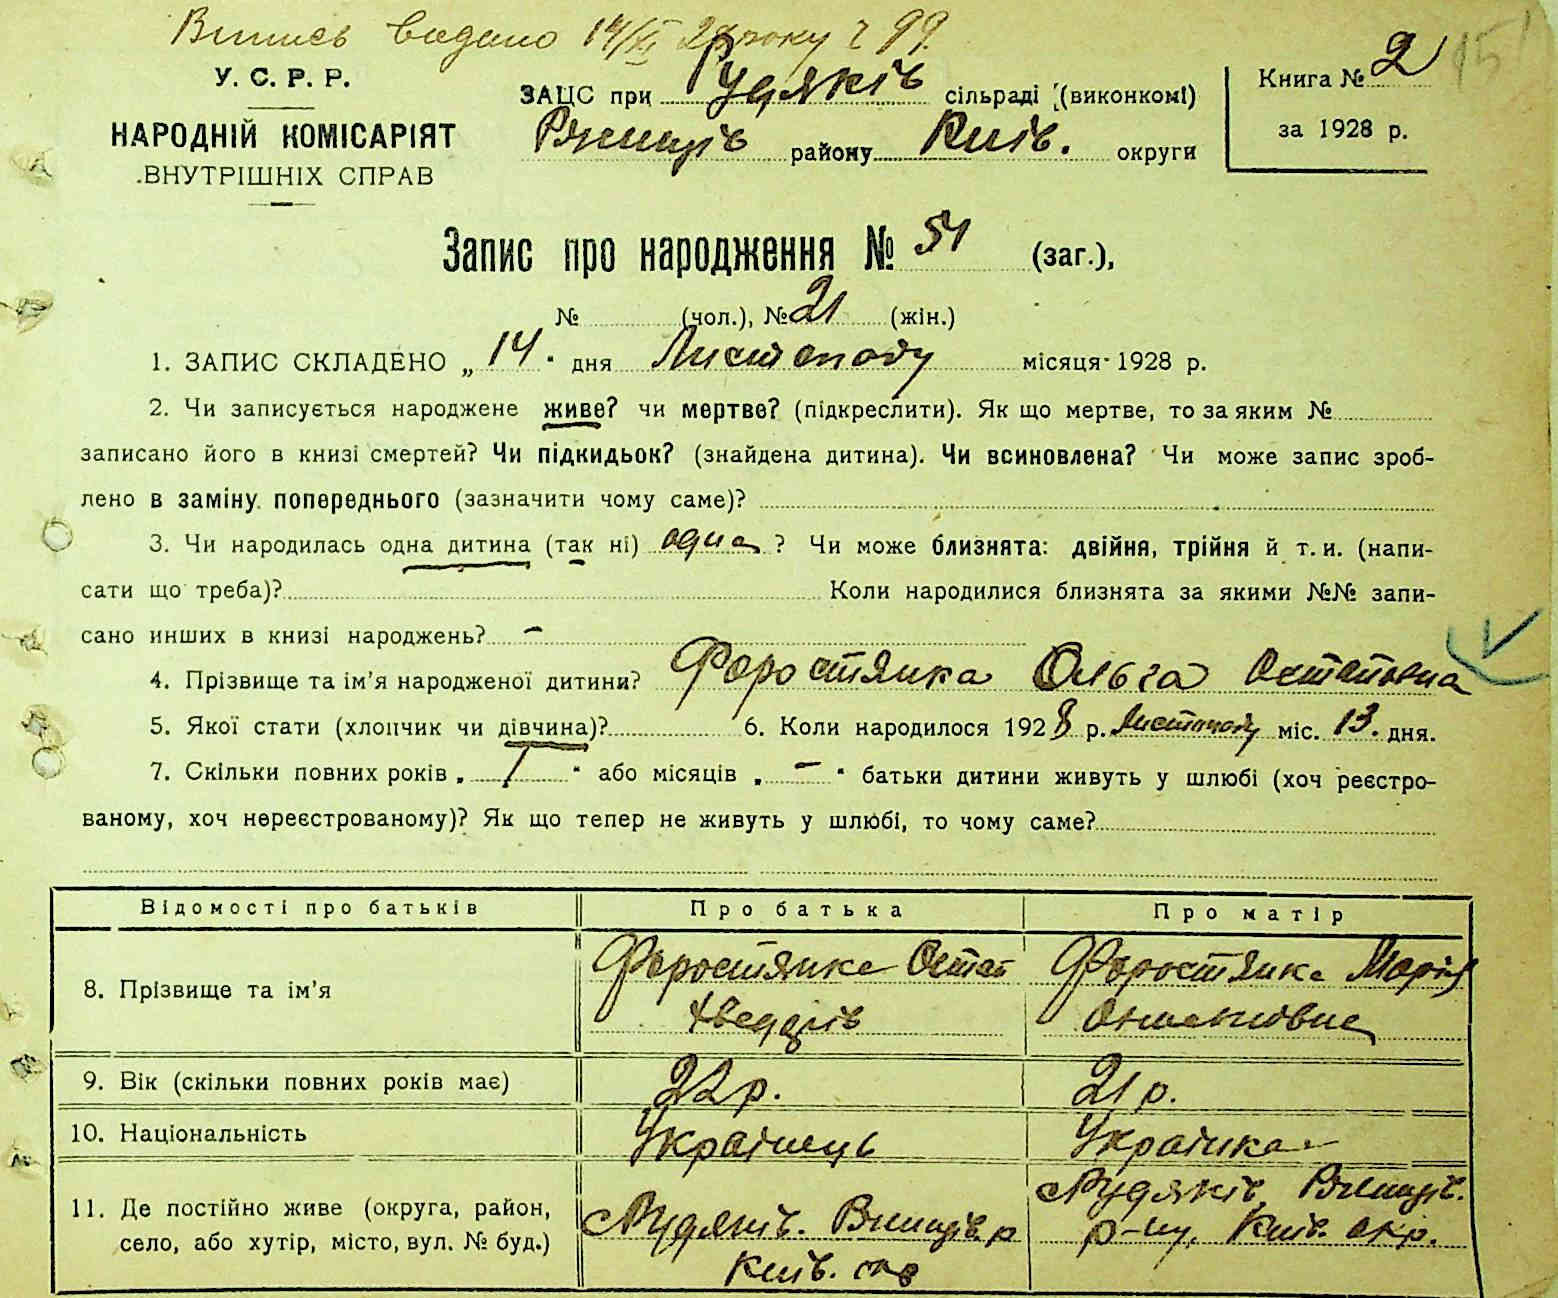 Випись видано 14/XI 28 року Ч 99.
У. С. Р. Р.
НАРОДНІЙ КОМІСАРІЯТ
ВНУТРІШНІХ СПРАВ
ЗАЦС при Рудяків сільраді (виконкомі)
району Київ. округи
Книга № 2
за 1928 р.
151
Запис про народження № 51 (заг.),
№ (чол.), № 21 (жін.)
1. ЗАПИС СКЛАДЕНО „ 14 " дня Листопаду місяця 1928 р.
2. Чи записується народжене живе? чи мертве? (підкреслити). Як що мертве, то за яким №
записано його в книзі смертей? Чи підкидьок? (знайдена дитина). Чи всиновлена? Чи може запис зроб-
лено в заміну попереднього (зазначити чому саме)?
3. Чи народилась одна дитина (так ні) одна ? Чи може близнята: двійня, трійня й т. и. (напи-
сати що треба)? Коли народилися близнята за якими №№ запи-
сано инших в книзі народжень? –
4. Прізвище та ім'я народженої дитини? Форостянка Ольга Остаповна
5. Якої стати (хлопчик чи дівчина)? 6. Коли народилося 1928 р. Листопаду міс. 13. дня.
7. Скільки повних років „ 1 " або місяців „ – " батьки дитини живуть у шлюбі (хоч реєстро-
ваному, хоч нереєстрованому)? Як що тепер не живуть у шлюбі, то чому саме?
Відомості про батьків Про батька Про матір
8. Прізвище та ім'я Форостянко Остап Форостянка Марія
9. Вік (скільки повних років має) 22 р. 21 р.
10. Національність Українець Українка
11. Де постійно живе (округа, район,
село, або хутір, місто, вул. № буд.)
Рудяків. р Київ. окр
Рудяків р-ну. Київ. окр.